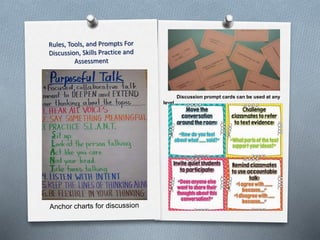 Rules, Tools, and Prompts For
Discussion, Skills Practice and
Assessment
Purposeful Talk
Focused, collaborative talk
meant to DEEPEN and EXTEND
our thinking about the topic
1. HEAR ALL VOICES
2. SAY SOMETHING MEANINGFUL
3. PRACTICE S.L.A.N.T.
Sit up
Look at the person talking
Act like you care
Nod your head
Take turns talking
4. LISTEN WITH INTENT
5. KEEP THE LINES OF THINKING ALIVE
6. BE FLEXIBLE IN YOUR THINKING
Anchor charts for discussion
Discussion prompt cards can be used at any
level
Move the
conversation
around the room:
"How do you feel
about what ...... said?"
Challenge
classmates to refer
to text evidence:
"What parts of the text
support your ideas?"
Invite quiet students
to participate:
"Does anyone else
want to share their
thoughts about this
conversation?"
Remind classmates
to use accountable
talk:
"I agree with ......
because..."
"I disagree with ......
because..."